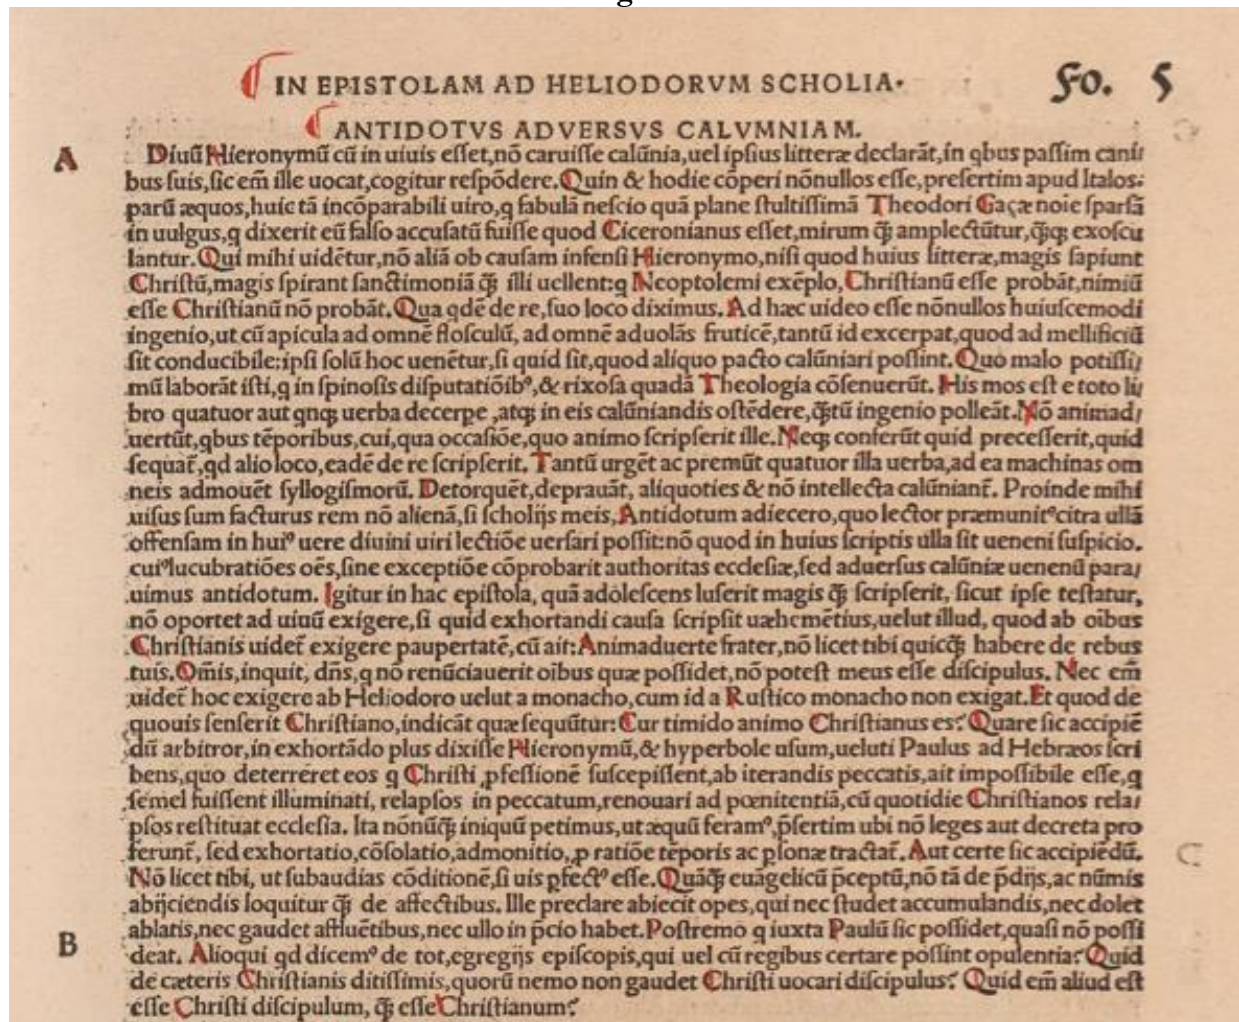 IN EPISTOLAM AD HELIODORVM SCHOLIA. Fo. 5
ANTIDOTVS ADVERSVS CALVMNIAM.
A
Diuũ Hieronymũ cũ in uiuis esset,nõ caruisse calũnia,uel ipsius litteræ declarãt,in qbus passim cani/
bus suis,sic em̃ ille uocat,cogitur respõdere.Quin & hodie cõperi nõnullos esse,presertim apud Italos.
parũ æquos,huic tã incõparabili uiro,q fabulã nescio quã plane stultissimã Theodori Gaçæ noie sparsã
in uulgus,q dixerit eũ falso accusatũ fuisse quod Ciceronianus esset,mirum q̃ꝫ amplectũtur,q̃ꝫq; exoscu
lantur.Qui mihi uidẽtur,nõ aliã ob causam infensi Hieronymo,nisi quod huius litteræ,magis sapiunt
Christũ,magis spirant sanctimoniã q̃ꝫ illi uellent:q Neoptolemi exẽplo,Christianũ esse probãt,nimiũ
esse Christianũ nõ probãt.Qua qdẽ de re,suo loco diximus.Ad hæc uideo esse nõnullos huiuscemodi
ingenio,ut cũ apicula ad omnẽ flosculũ, ad omnẽ aduolãs fruticẽ,tantũ id excerpat,quod ad mellificiũ
sit conducibile:ipsi solũ hoc uenẽtur,si quid sit,quod aliquo pacto calũniari possint.Quo malo potissi/
mũ laborãt isti,q in spinosis disputatiõibꝰ,& rixosa quadã Theologia cõsenuerũt. His mos est e toto li/
bro quatuor aut qnqꝫ uerba decerpe ,atqꝫ in eis calũniandis ostẽdere,q̃ꝫtũ ingenio polleãt.Nõ animad/
uertũt,qbus tẽporibus,cui,qua occasiõe,quo animo scripserit ille.Neqꝫ conferũt quid precesserit,quid
sequat̃,qd alio loco,eadẽ de re scripserit. Tantũ urgẽt ac premũt quatuor illa uerba,ad ea machinas om
neis admouẽt syllogismorũ. Detorquẽt,deprauãt, aliquoties & nõ intellecta calũniant̃. Proinde mihi
uisus sum facturus rem nõ alienã,si scholijs meis,Antidotum adiecero,quo lector præmunitꝰcitra ullã
offensam in huiꝰ uere diuini uiri lectiõe uersari possit:nõ quod in huius scriptis ulla sit ueneni suspicio.
cuiꝰlucubratiões oẽs,sine exceptiõe cõprobarit authoritas ecclesiæ,sed aduersus calũniæ uenenũ para/
uimus antidotum. Igitur in hac epistola, quã adolescens luserit magis q̃ꝫ scripserit, sicut ipse testatur,
nõ oportet ad uiuũ exigere,si quid exhortandi causa scripsit uæhemẽtius,uelut illud, quod ab oĩbus
Christianis uidet̃ exigere paupertatẽ,cũ ait:Animaduerte frater,nõ licet tibi quicq̃ꝫ habere de rebus
tuis.Om̃is,inquit, dñs,q nõ renũciauerit oĩbus quæ possidet,nõ potest meus esse discipulus. Nec em̃
uidet̃ hoc exigere ab Heliodoro uelut a monacho,cum id a Rustico monacho non exigat.Et quod de
quouis senserit Christiano,indicãt quæ sequũtur:Cur timido animo Christianus es? Quare sic accipiẽ
dũ arbitror,in exhortãdo plus dixisse Hieronymũ,& hyperbole usum,ueluti Paulus ad Hebræos scri
bens,quo deterreret eos q Christi ꝓfessionẽ suscepissent,ab iterandis peccatis,ait impossibile esse,q
semel fuissent illuminati, relapsos in peccatum,renouari ad pœnitentiã,cũ quotidie Christianos rela/
psos restituat ecclesia. Ita nõnũq̃ꝫ iniquũ petimus,ut æquũ feramꝰ,p̃sertim ubi nõ leges aut decreta pro
ferunt̃, sed exhortatio,cõsolatio,admonitio,ꝓ ratiõe tẽporis ac ꝑsonæ tractat̃.Aut certe sic accipiẽdũ.
Nõ licet tibi, ut subaudias cõditionẽ,si uis ꝑfectꝰ esse.Quãq̃ꝫ euãgelicũ p̃ceptũ,nõ tã de p̃dijs,ac nũmis
abijciendis loquitur q̃ꝫ de affectibus. Ille preclare abiecit opes,qui nec studet accumulandis,nec dolet
ablatis,nec gaudet affluẽtibus,nec ullo in p̃cio habet.Postremo q iuxta Paulũ sic possidet,quasi nõ possi
B
deat. Alioqui qd dicemꝰ de tot,egregijs episcopis,qui uel cũ regibus certare possint opulentia? Quid
de cæteris Christianis ditissimis,quorũ nemo non gaudet Christi uocari discipulus? Quid em̃ aliud est
esse Christi discipulum, q̃ꝫ esse Christianum?